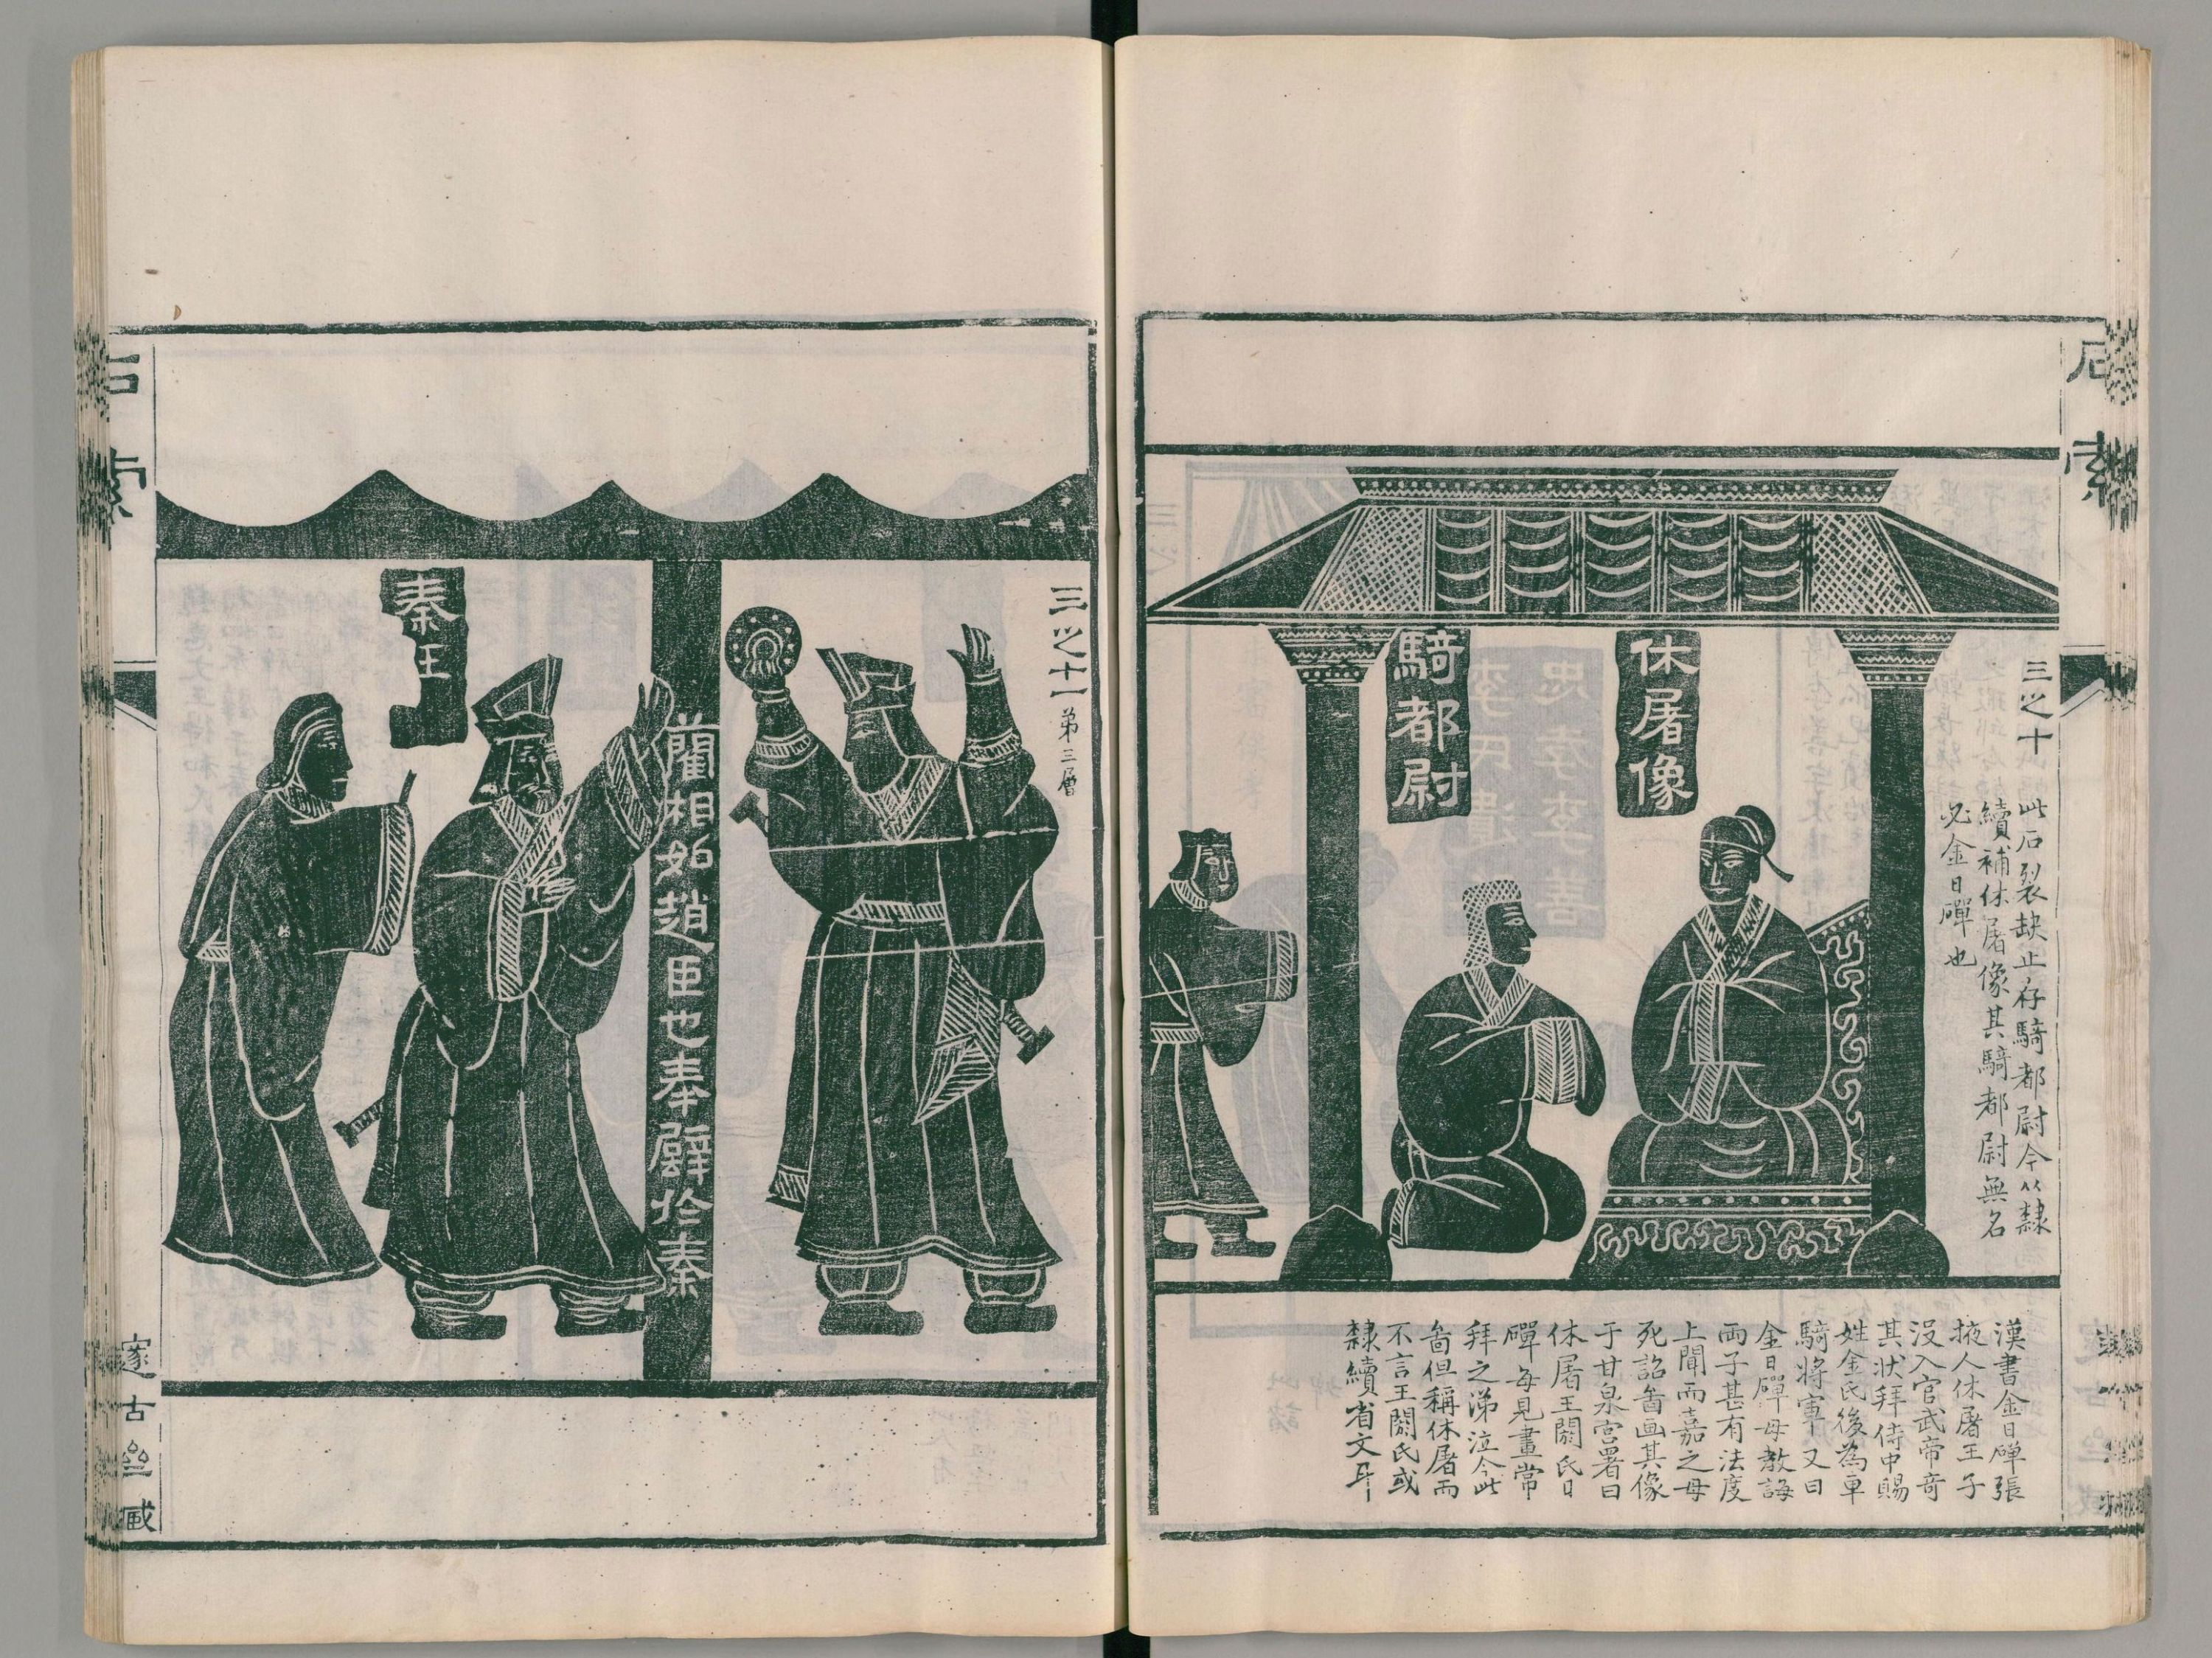 石索
三之十
此石裂缺止存騎都尉今以隸
續補休屠像其騎都尉無名
必金日磾也
休屠像
騎都尉
漢書金日磾張
掖人休屠王子
没入官武帝奇
其状拜侍中賜
姓金氏後為車
騎將軍又曰
金日磾母教誨
两子甚有法度
上聞而嘉之母
死詔啚画其像
于甘泉宫署曰
休屠王閼氏日
磾每見畫常
拜之涕泣今此
啚但稱休屠而
不言王閼氏或
隸續省文耳
三之十一 第三層
藺相如趙臣也奉璧於秦
秦王
石索
邃古齋臧